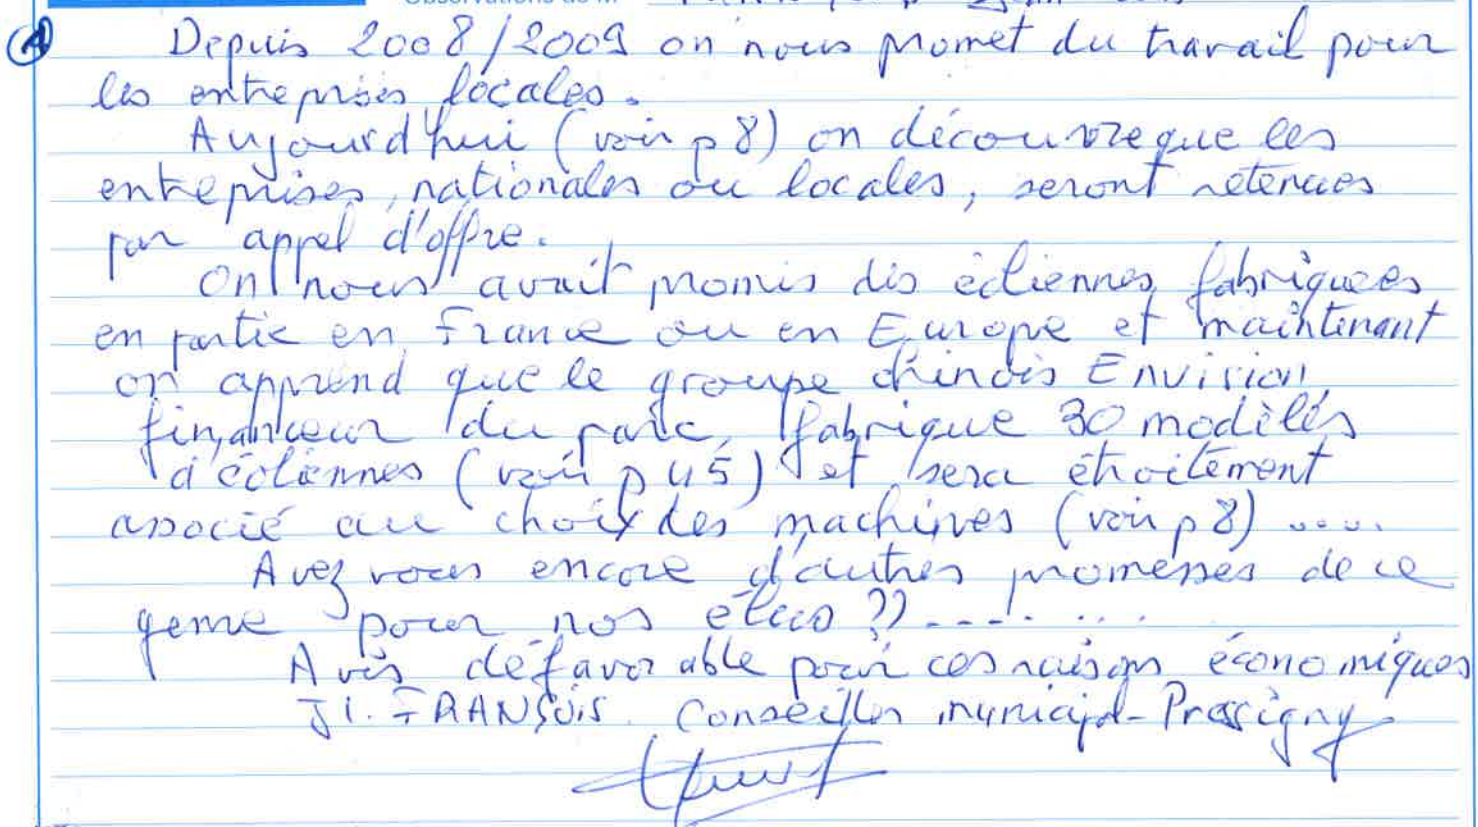 Observations de M
④ Depuis 2008/2009 on nous promet du travail pour
les entreprises locales.
Aujourd'hui (voir p 8) on découvre que les
entreprises, nationales ou locales, seront retenues
par appel d'offre.
On nous avait promis des éoliennes fabriquées
en partie en France ou en Europe et maintenant
on apprend que le groupe chinois Envision,
financeur du parc, fabrique 30 modèles
d'éoliennes (voir p 45) et sera étroitement
associé au choix des machines (voir p 8) .....
Avez vous encore d'autres promesses de ce
genre pour nos élus ??.......
Avis défavorable pour ces raisons économiques
FRANÇOIS. Conseiller municipal - Pressigny